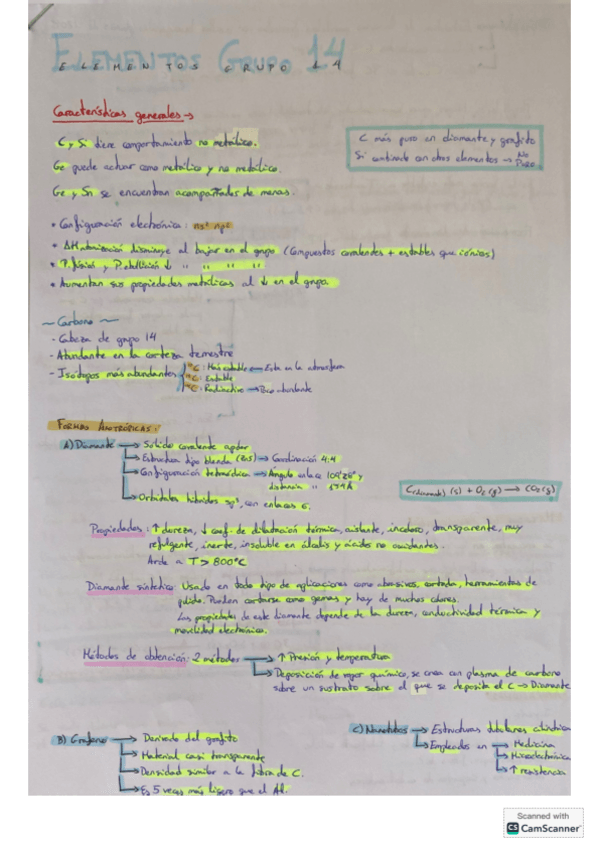 ELEMENTOS GRUPO 14
ELEMENTOS GRUPO 14
Características generales →
C y Si tiene comportamiento no metálico.
Ge puede actuar como metálico y no metálico.
Ge y Sn se encuentran acompañados de menas.
C más puro en diamante y grafito
Si combinado con otros elementos → No Puro
* Configuración electrónica: ns² np²
* ΔH atomización disminuye al bajar en el grupo (Compuestos covalentes + estables que iónicos)
* P. fusión y P. ebullición ↓ " " " "
* Aumentan sus propiedades metálicas al ↓ en el grupo.
~ Carbono ~
- Cabeza de grupo 14
- Abundante en la corteza terrestre
- Isótopos más abundantes
C: Más estable → Esta en la atmosfera
C: Estable
C: Radioactivo → Poco abundante
FORMAS ALOTRÓPICAS:
A) Diamante → Sólido covalente apolar
→ Estructura tipo blenda (ZnS) → Coordinación 4:4
→ Configuración tetraédrica → Ángulo enlace 109'28° y
distancia " 1'54 Å
→ Orbitales híbridos sp³, con enlaces σ.
C(diamante) (s) + O₂ (g) → CO₂ (g)
Propiedades: ↑ dureza, ↓ coef. de dilatación térmica, aislante, incoloro, transparente, muy
refulgente, inerte, insoluble en álcalis y ácidos no oxidantes.
Arde a T > 800°C
Diamante sintético: Usado en todo tipo de aplicaciones como abrasivos, cortado, herramientas de
pulido. Pueden cortarse como gemas y hay de muchos colores.
Las propiedades de este diamante depende de la dureza, conductividad térmica y
movilidad electrónica.
Métodos de obtención: 2 métodos → ↑ Presión y temperatura
→ Deposición de vapor químico, se crea con plasma de carbono
sobre un sustrato sobre el que se deposita el C → Diamante
B) Grafeno → Derivado del grafito
→ Material casi transparente
→ Densidad similar a la fibra de C.
→ Es 5 veces más ligero que el Al.
C) Nanotubos → Estructuras tubulares cilíndricas
→ Empleados en → Medicina
→ Microelectrónica
→ ↑ resistencia
Scanned with
CS CamScanner